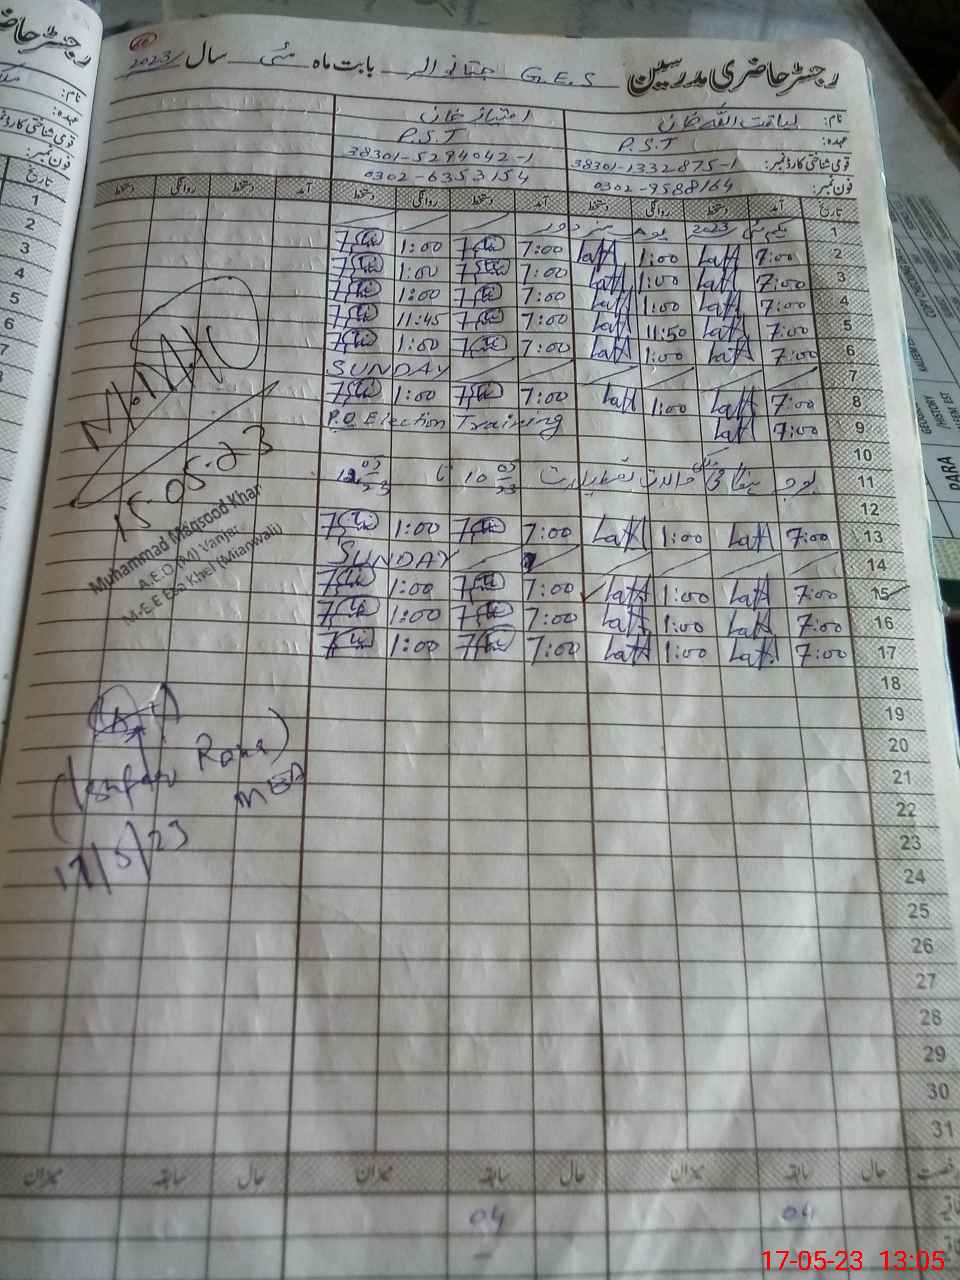 رجسٹر حاضری مدرسین G.E.S بابت ماہ مئی سال 2023
نام: لیاقت اللہ خان امتیاز خان
عہدہ: P.S.T P.S.T
قومی شناختی کارڈ نمبر: 38301-1332875-1 38301-5294042-1
فون نمبر: 0302-9588164 0302-6353154
تاریخ آمد دستخط روانگی دستخط آمد دستخط روانگی دستخط آمد دستخط روانگی دستخط
1 یکم مئی 2023 یوم مزدور
2 7:00 1:00 7:00 1:00
3 7:00 1:00 7:00 1:00
4 7:00 1:00 7:00 1:00
5 7:00 11:50 7:00 11:45
6 7:00 1:00 7:00 1:00
7 SUNDAY
8 7:00 1:00 7:00 1:00
9 7:00 P.O Election Training
10
11 بوجہ حالات تعطیلات 10 05 23 تا 12 05 23
12
13 7:00 1:00 7:00 1:00
14 SUNDAY
15 7:00 1:00 7:00 1:00
16 7:00 1:00 7:00 1:00
17 7:00 1:00 7:00 1:00
18
19
20
21
22
23
24
25
26
27
28
29
30
31
M.MHC
15.05.23
Muhammad Maqsood Khan
A.E.O (M) Vanjari
M-E.E Esa Khel (Mianwali)
Rana)
MEA
17/5/23
حال سابقہ میزان حال سابقہ میزان حال سابقہ میزان
04 04
17-05-23 13:05